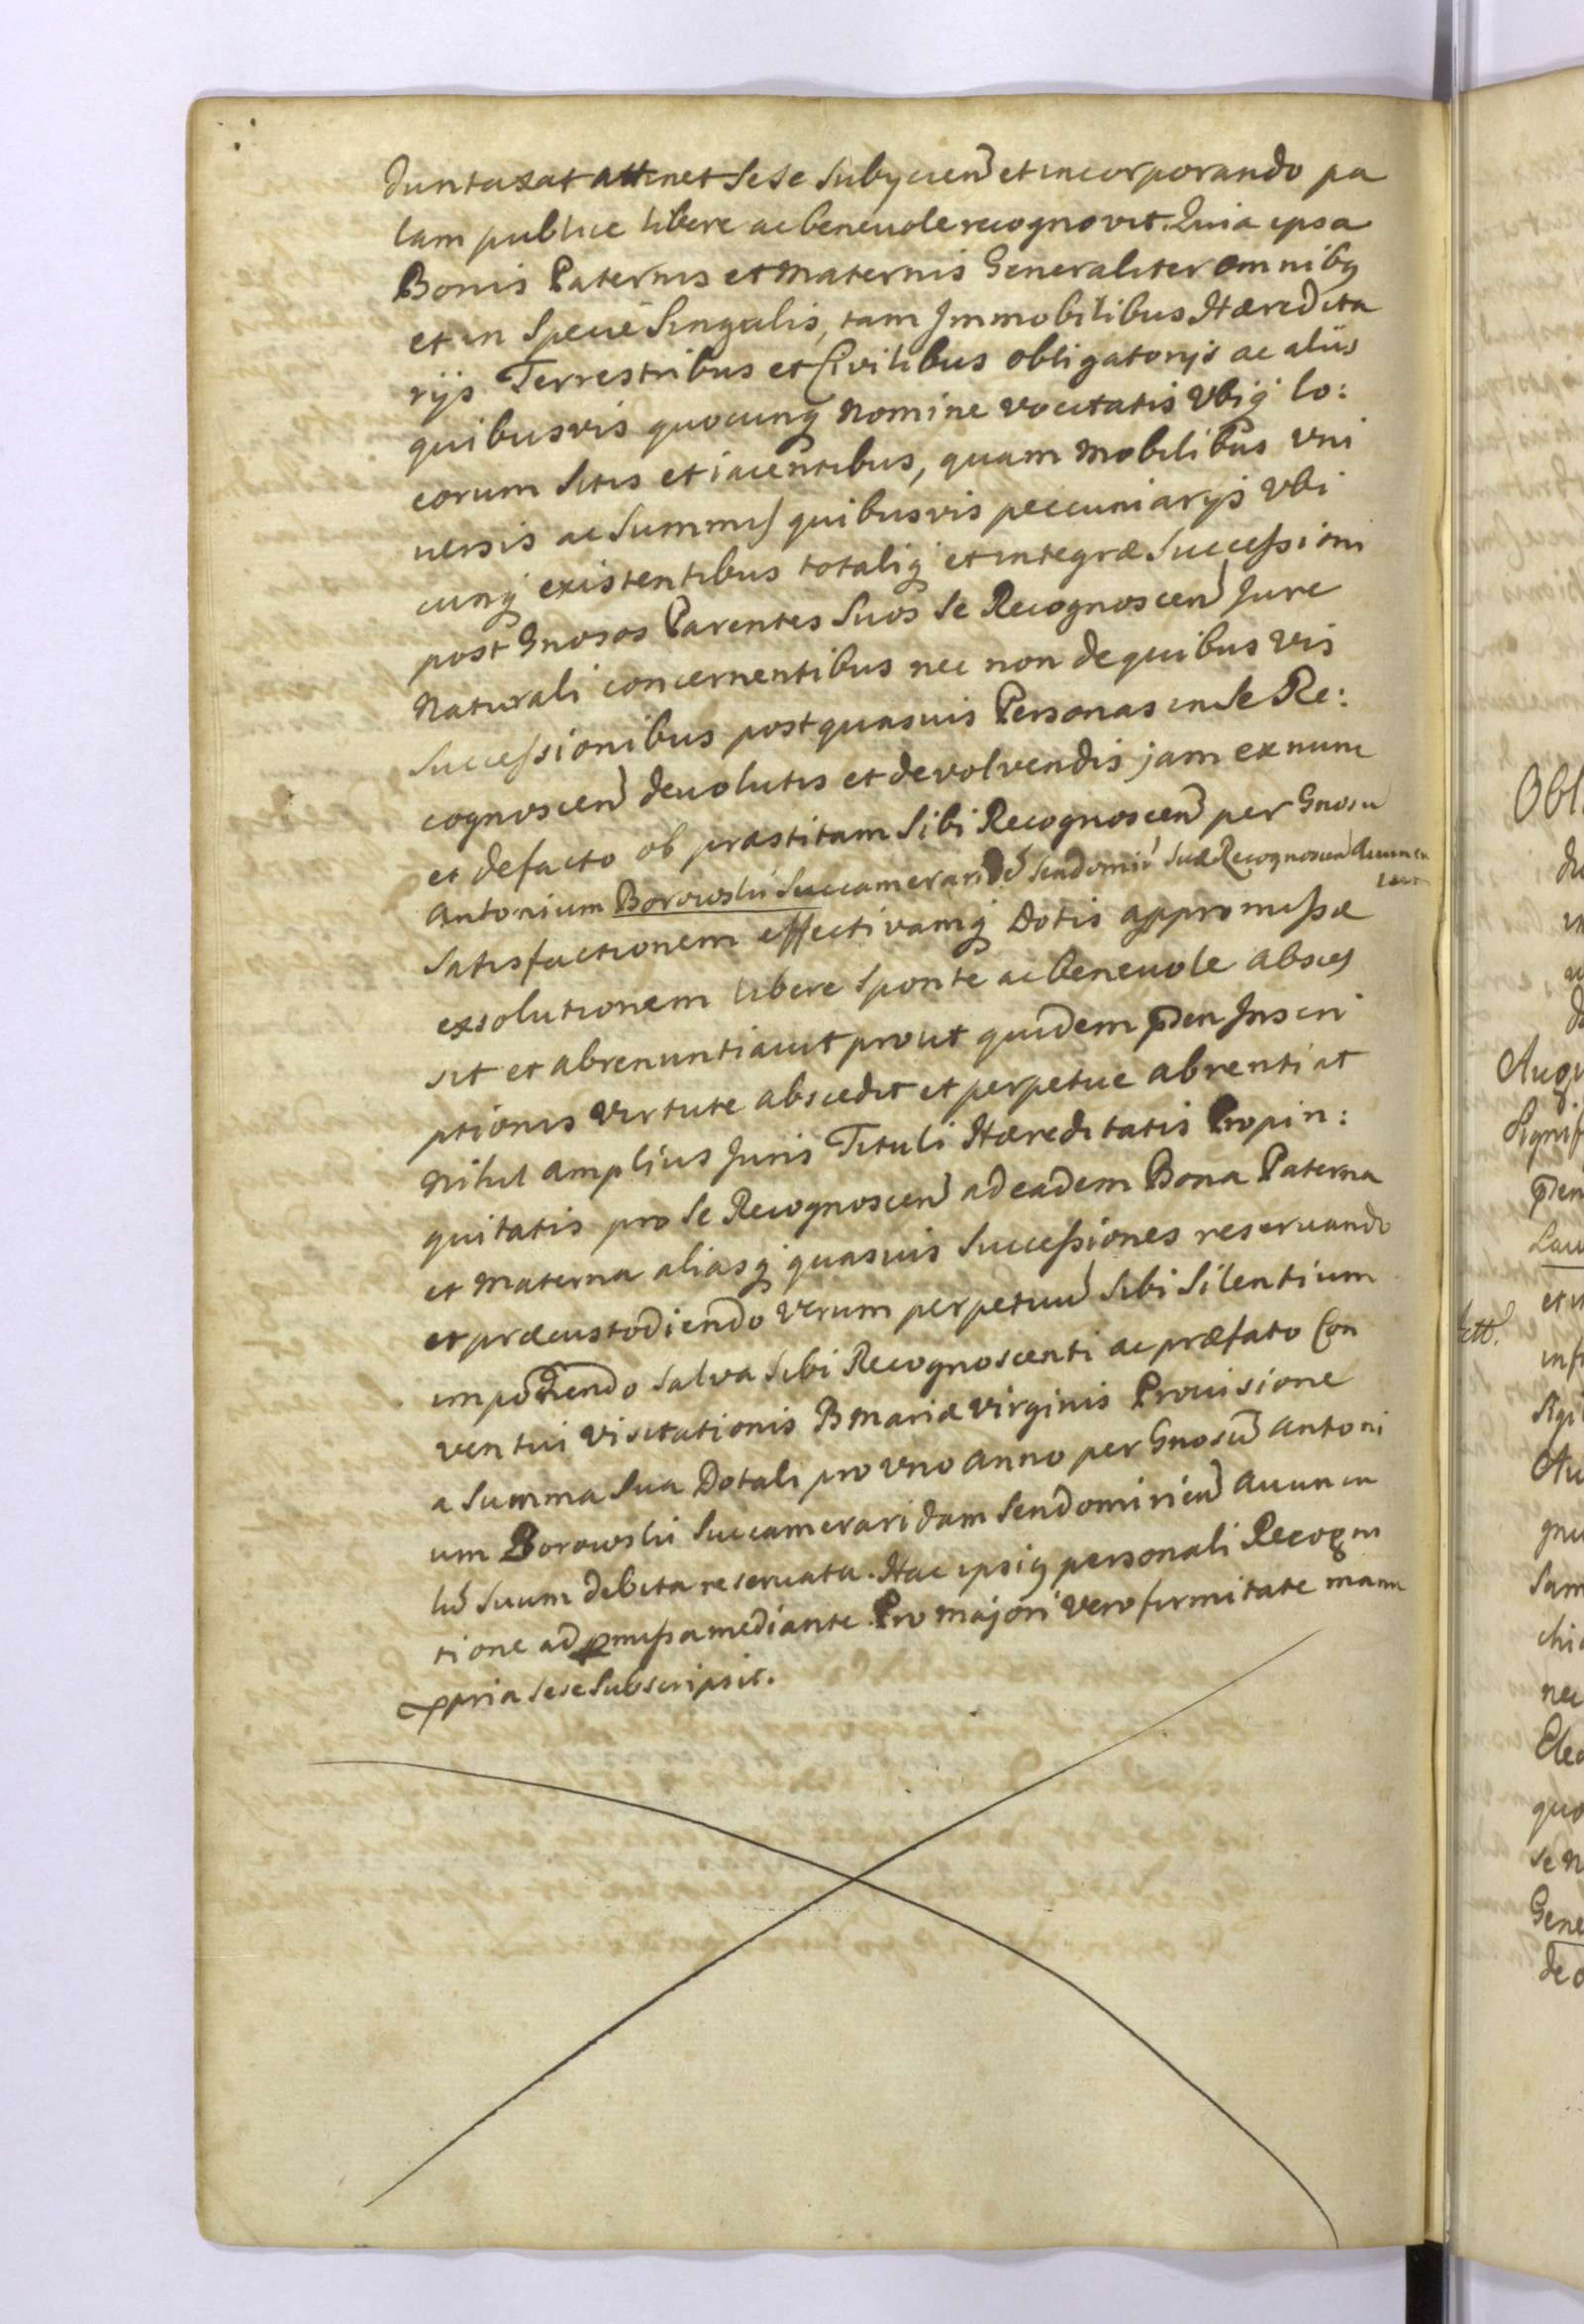 duntaxat attinet sese subyciend et incorporando pa
lam publice libere ac beneuole recognovit. Quia ipsa
Bonis Paternis et Maternis Generaliter omnibq
et in Specie Singulis, tam Immobilibus Hæredita
rijs Terrestribus et Civilibus obligatorijs ac aliis
quibusvis quocunq nomine vocitatis vbiq lo:
corum sitis et iacentibus, quam Mobilibus vni
uersis ac Summis quibusvis peccuniarijs vbi
cunq existentibus totaliq et integræ Successioni
post Gnosos Parentes Suos se Recognoscen Jure
Naturali concernentibus nec non de quibus vis
Successionibus post quasuis Personas in se Re:
cognoscen deuolutis et devolvendis jam ex nunc
et de facto ob præstitam sibi Recognoscen per Gnosu
Antonium Borowski Succamerarid Sendomir Suæ Recognoscen Auuncu
Satisfactionem effectivamq Dotis appromissæ
exsolutionem libere sponte ac beneuole absces
sit et abrenuntiauit prout quidem pden Inscri
ptionis virtute abscedit et perpetue abrentiat
Nihil amplius Juris Tituli Hæreditatis Propin:
quitatis pro se Recognoscen ad eadem Bona Paterna
et Materna aliasq quasuis Successiones reseruando
et præcustodiendo verum perpetuu sibi silentium
imponendo salva sibi Recognoscenti ac præfato Con
ventui Visitationis B Mariæ Virginis Prouisione
a Summa Sua Dotali pro vno Anno per Gnosu Antoni
um Borowski Succameraridam Sendomirien Auuncu
lu Suum debita reseruata. Hac ipsiq personali Recogni
tione ad pmissa mediante. Pro majori vero firmitate manu
ppria sese Subscripsit.